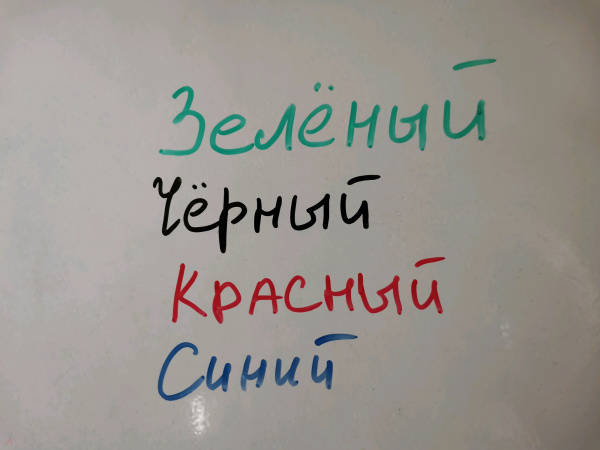 Зелёный
Чёрный
Красный
Синий